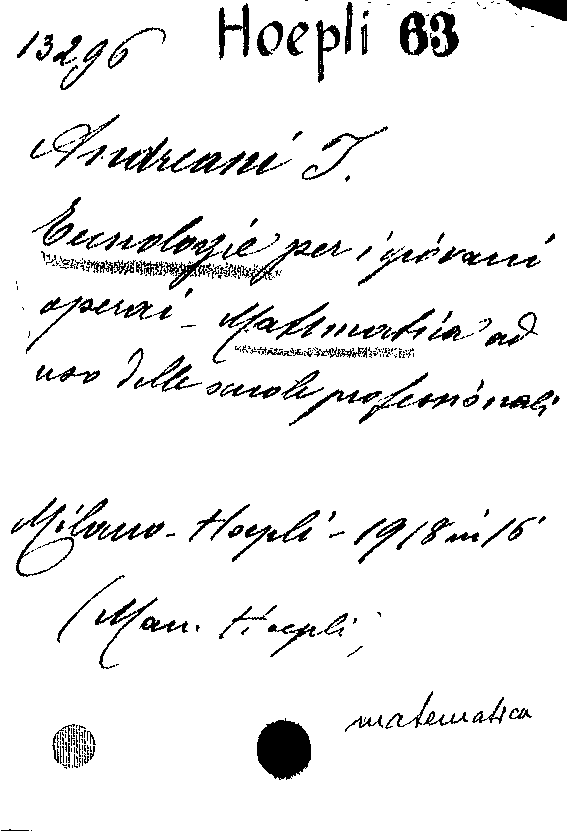 13296 Hoepli 63
Andreani I.
Tecnologie per i giovani
operai - Matematica ad
uso delle scuole professionali
Milano - Hoepli - 1918 in 16
(Man. Hoepli)
matematica